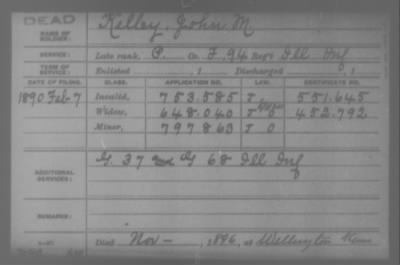 DEAD
NAME OF SOLDIER: Kelley, John M
SERVICE: Late rank, P. Co. F, 94 Reg't Ill Inf
TERM OF SERVICE: Enlisted , 1 Discharged 0 , 1
DATE OF FILING. CLASS. APPLICATION NO. LAW. CERTIFICATE NO.
1890 Feb 7 Invalid, 753.585 J 551.645
Widow, 648.040 J O 452.792
Minor, 797863 J O
ADDITIONAL SERVICES: G. 37 and G 68 Ill Inf
REMARKS:
Died Nov - , 1896, at Wellington Kans